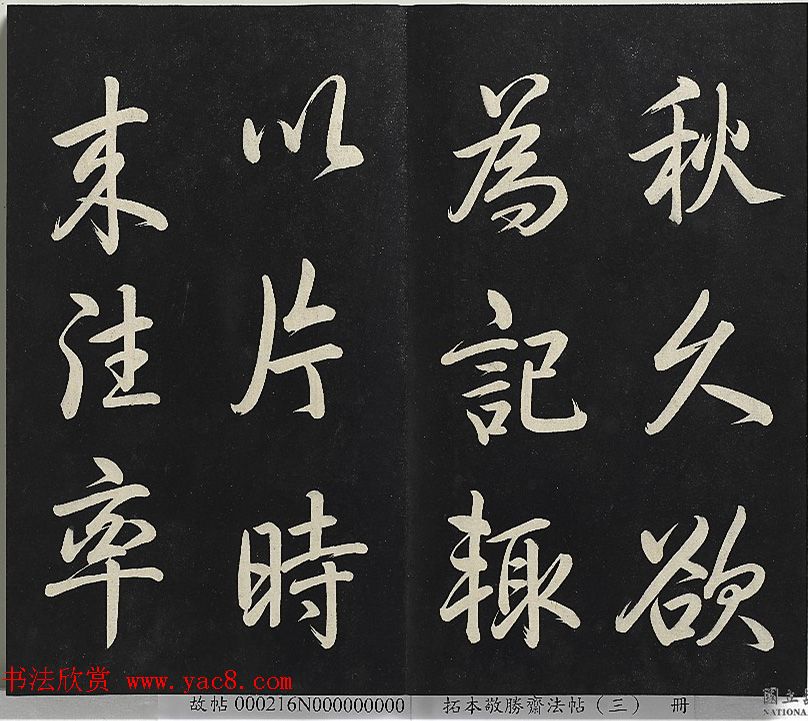 秋久欲
為記輙
以片時
来往率
书法欣赏 www.yac8.com
故帖 000216N000000000
拓本敬勝齋法帖（三） 冊
國立
NATIONA